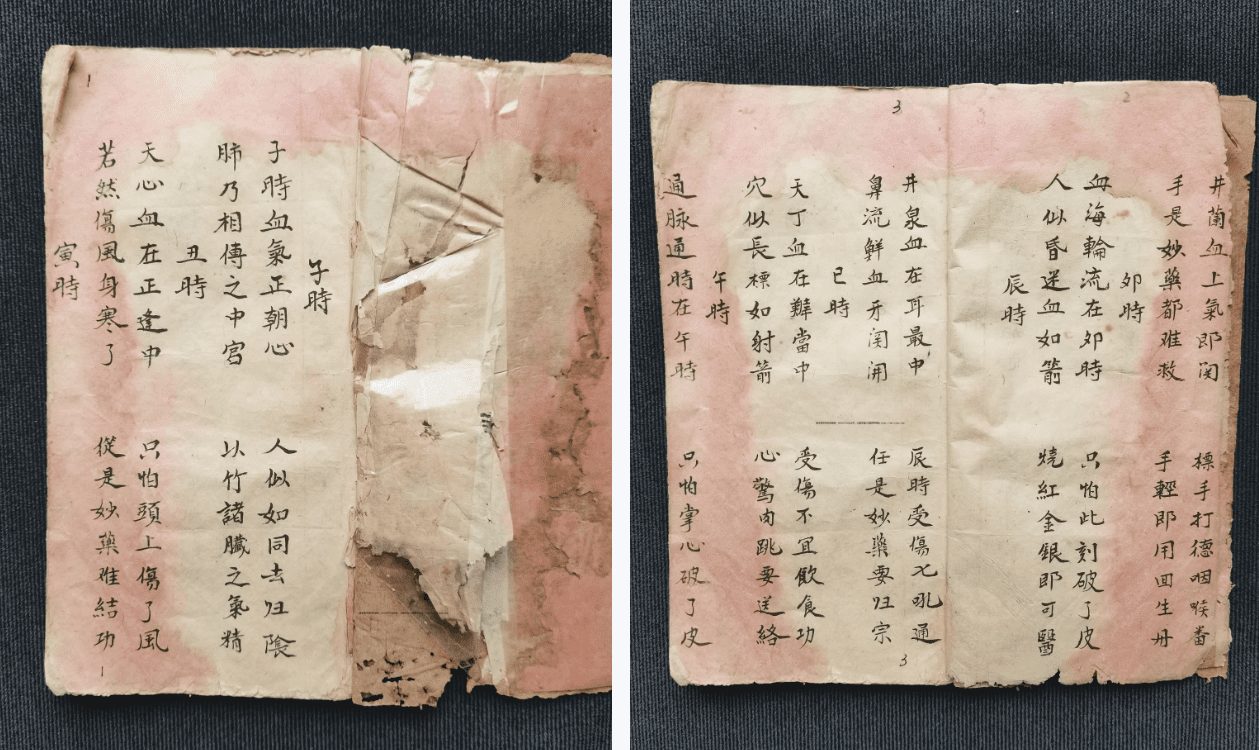 1
子時
子時血氣正朝心 人似如同去归陰
肺乃相傳之中宫 以竹諸臟之氣精
丑時
天心血在正逢中 只怕頭上傷了風
若然傷風身寒了 從是妙藥难結功
寅時
1
2
井蘭血上氣即関 標手打德咽喉畨
手是妙藥都难救 手輕即用回生丹
卯時
血海輪流在卯時 只怕此刻破了皮
人似昏迷血如箭 燒紅金銀即可醫
辰時
3
井泉血在耳最中 辰時受傷七吼通
鼻流鮮血牙関開 任是妙藥要归宗
巳時
天丁血在辮當中 受傷不宜飲食功
穴似長標如射箭 心驚肉跳要送絡
午時
通脉通時在午時 只怕掌心破了皮
3